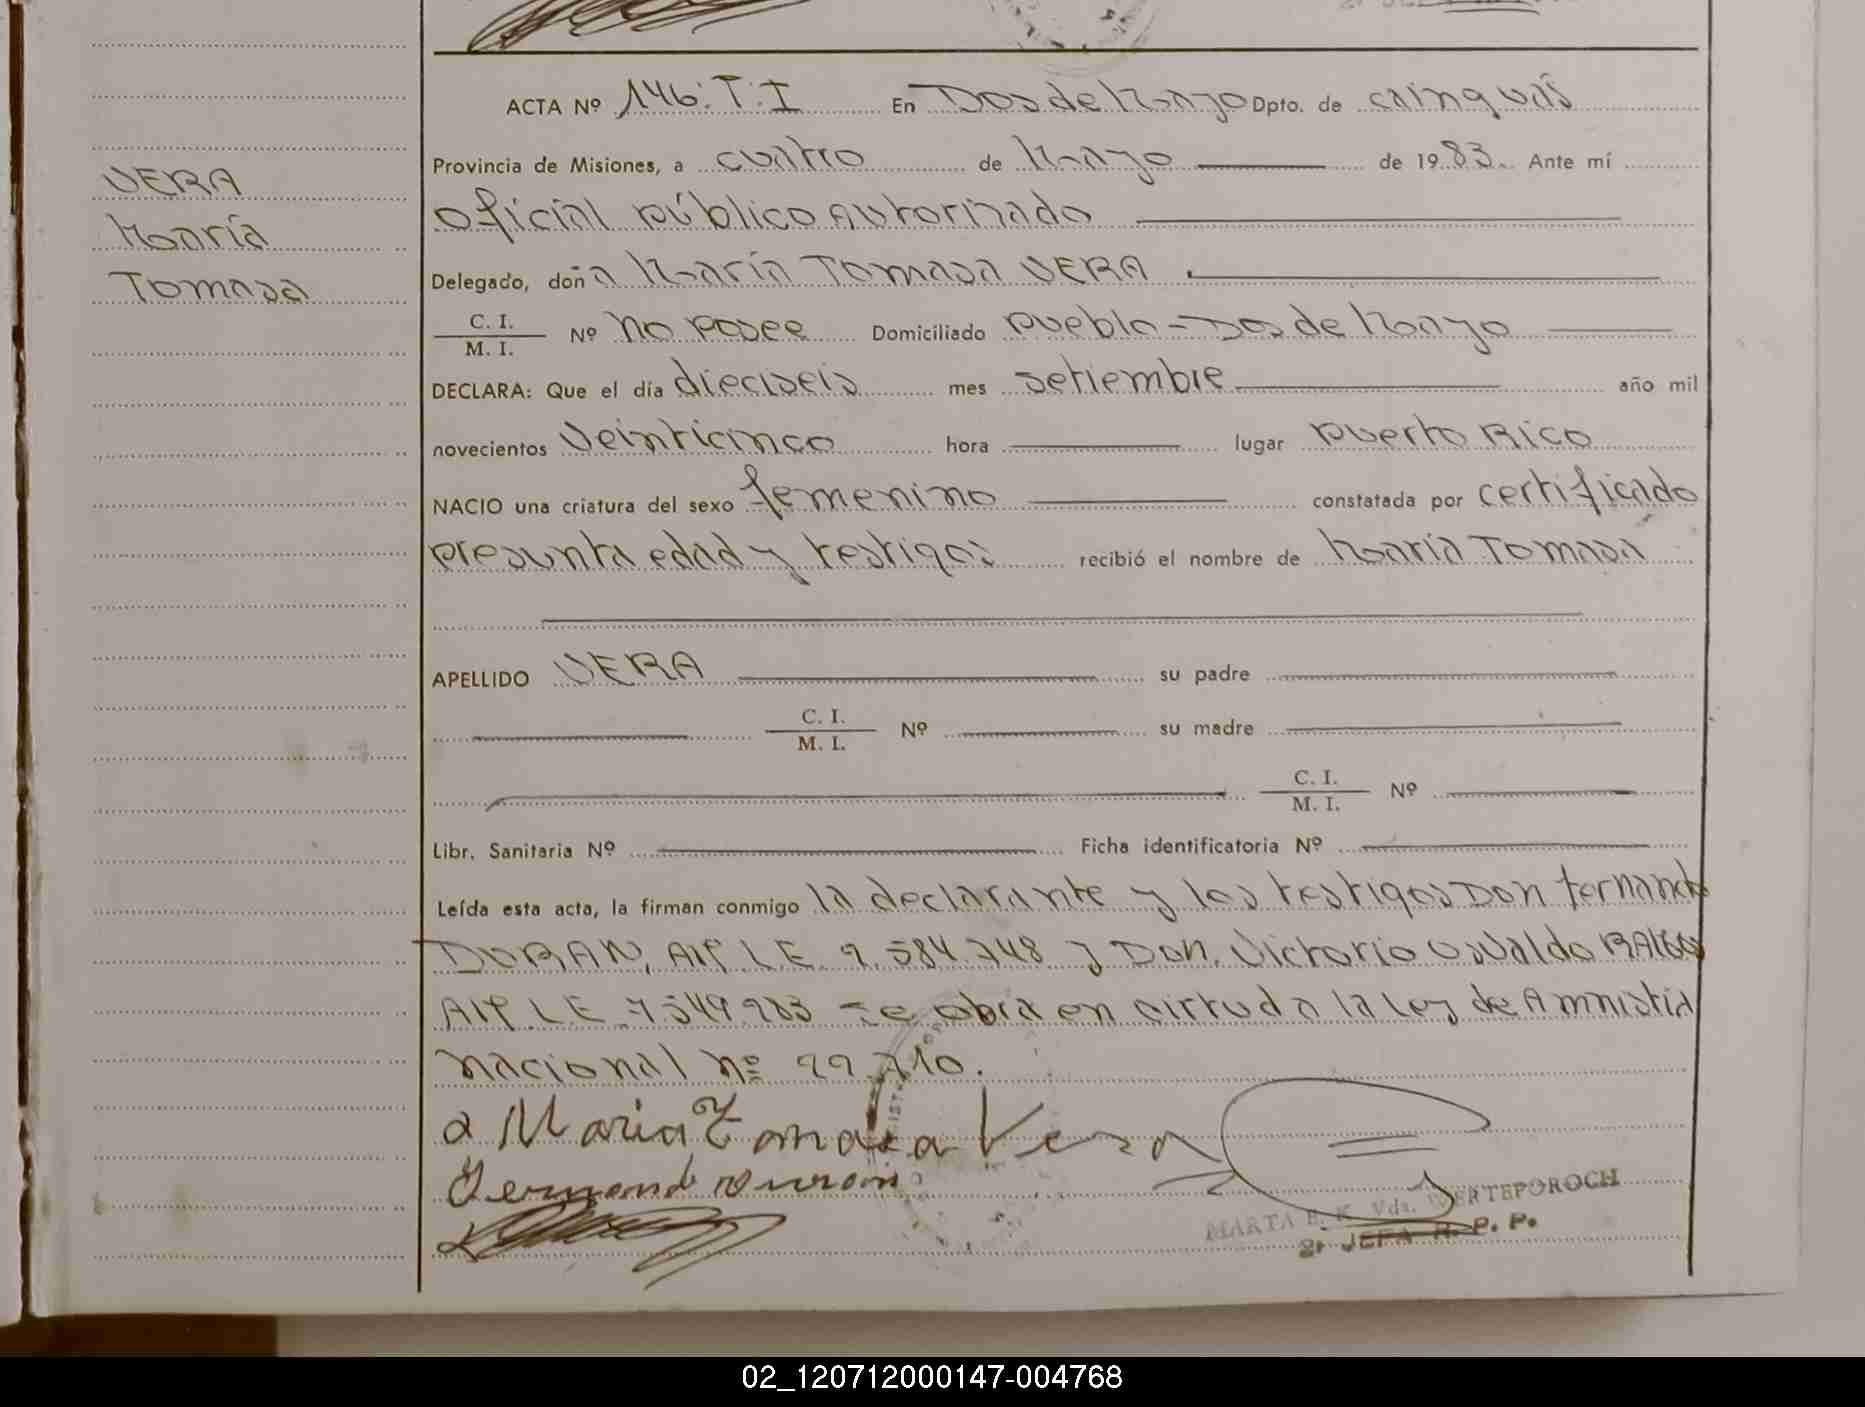 ACTA Nº 146. T. I En Dos de Mayo Dpto. de cainguás
Provincia de Misiones, a cuatro de Mayo de 1983. Ante mí
VERA
oficial público Autorizado
María
Delegado, doña María Tomasa VERA
Tomasa
C. I. / M. I. Nº no posee Domiciliado pueblo - Dos de Mayo
DECLARA: Que el día dieciseis mes setiembre año mil
novecientos veinticinco hora lugar puerto Rico
NACIO una criatura del sexo femenino constatada por certificado
presunta edad y testigos recibió el nombre de María Tomasa
APELLIDO VERA su padre
C. I. / M. I. Nº su madre
C. I. / M. I. Nº
Libr. Sanitaria Nº Ficha identificatoria Nº
Leída esta acta, la firman conmigo la declarante y los testigos Don fernando
DURAN, L.E. y Don. Victorio Osvaldo
L.E. se obra en virtud a la Ley de Amnistia
nacional nº 22.710.
a Maria Tomasa Vera
Fernando Duran
MARTA E. K. Vda. WERTEPOROCH
2ª JEFA R. P. P.
02_120712000147-004768